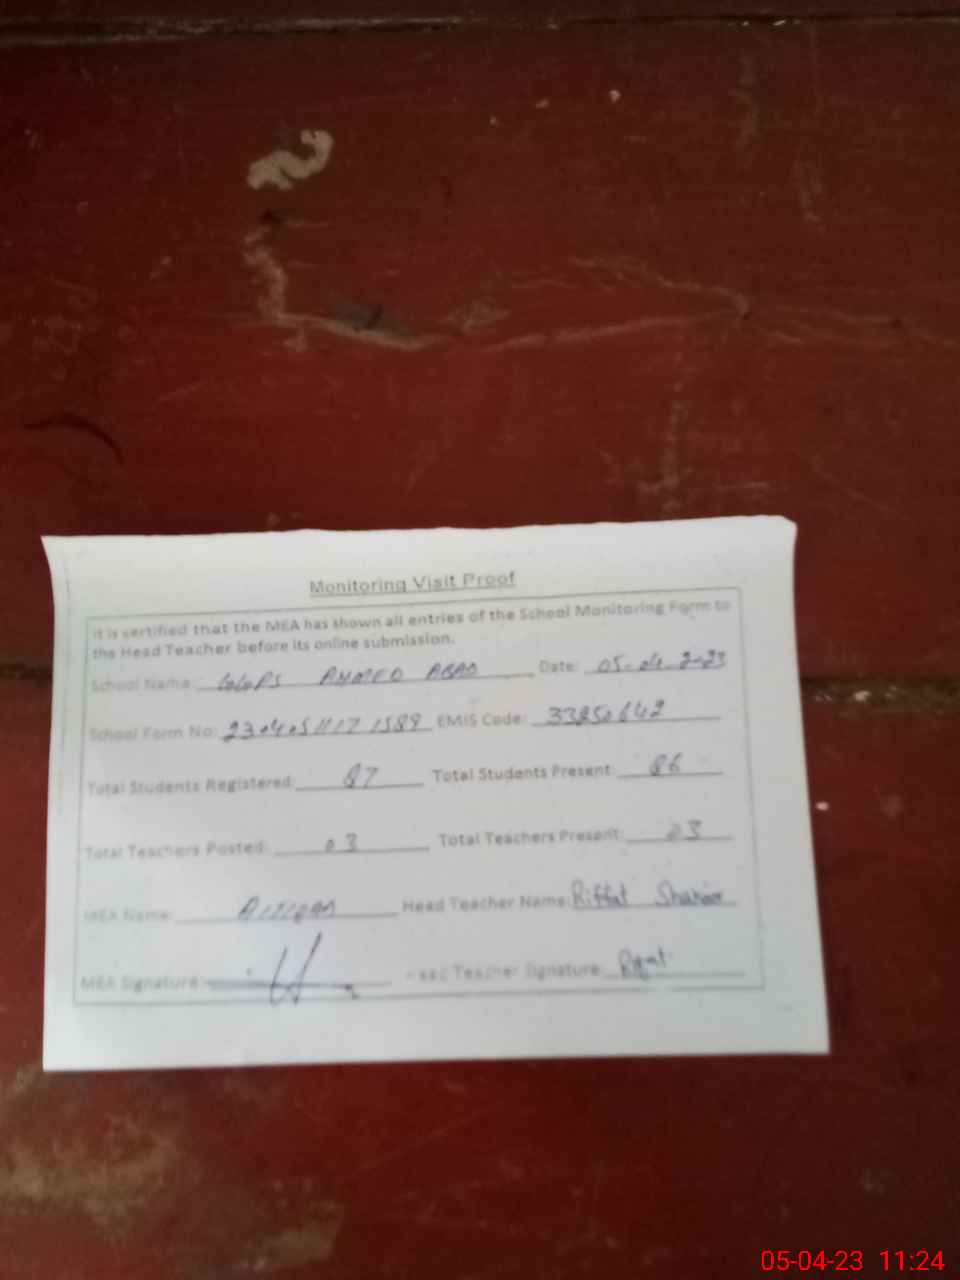 Monitoring Visit Proof
It is certified that the MEA has shown all entries of the School Monitoring Form to
the Head Teacher before its online submission.
School Name: AHMED ABAD Date: 05-04-2023
School Form No: EMIS Code: 33250642
Total Students Registered: 87 Total Students Present: 86
Total Teachers Posted: 03 Total Teachers Present: 03
MEA Name: Head Teacher Name: Riffat
MEA Signature: Teacher Signature:
05-04-23 11:24